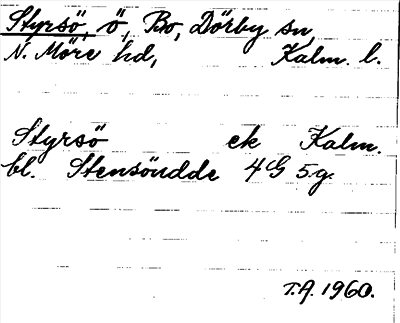 Styrsö, ö, Bo, Dörby sn,
N. Möre hd, Kalm. l.
Styrsö ek Kalm.
bl. Stensöudde 4G 5g.
T.A. 1960.